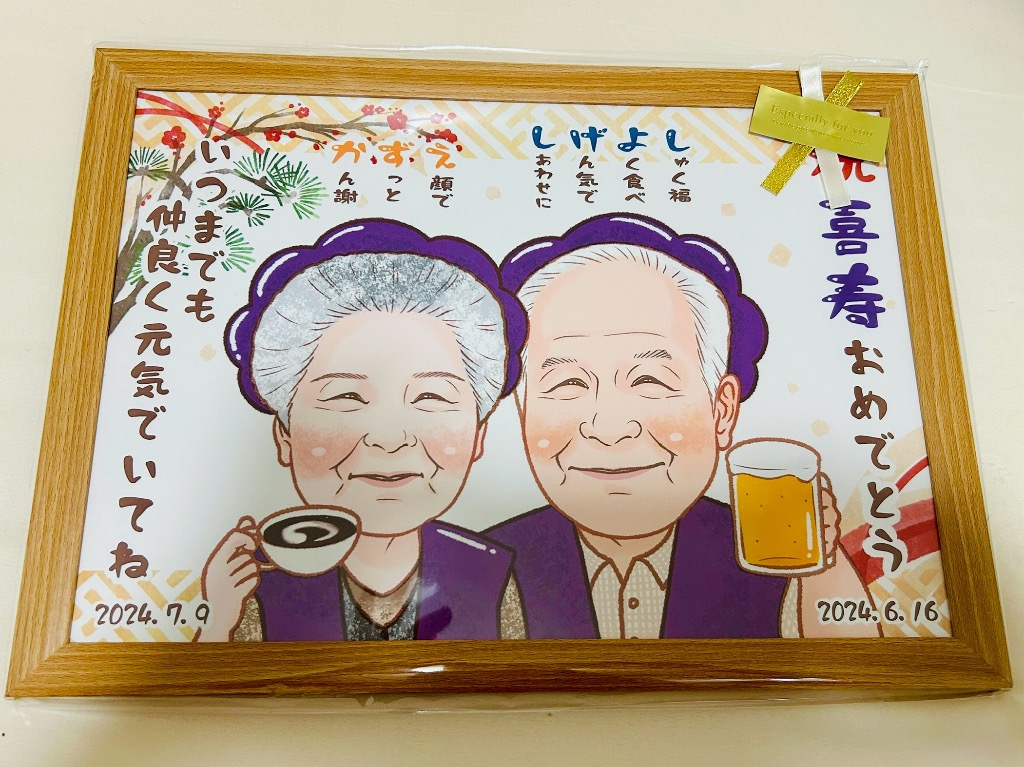 Especially for you
祝
喜寿おめでとう
しゅく福
よく食べ
げん気で
しあわせに
え顔で
ずっと
かん謝
いつまでも
仲良く元気でいてね
2024.7.9
2024.6.16